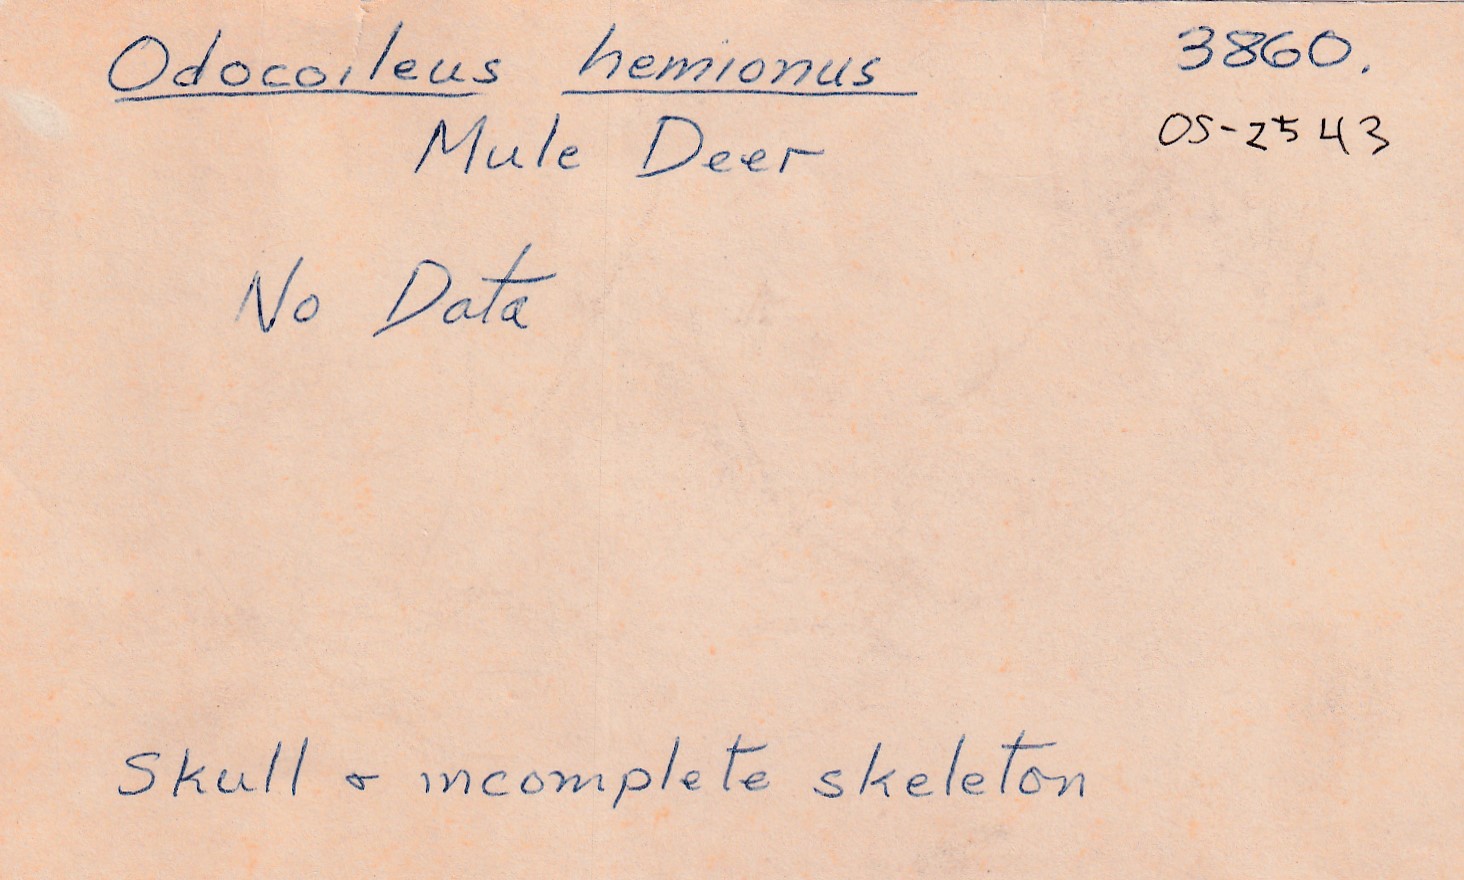 Odocoileus hemionus 3860.
OS-2543
Mule Deer
No Data
Skull & incomplete skeleton